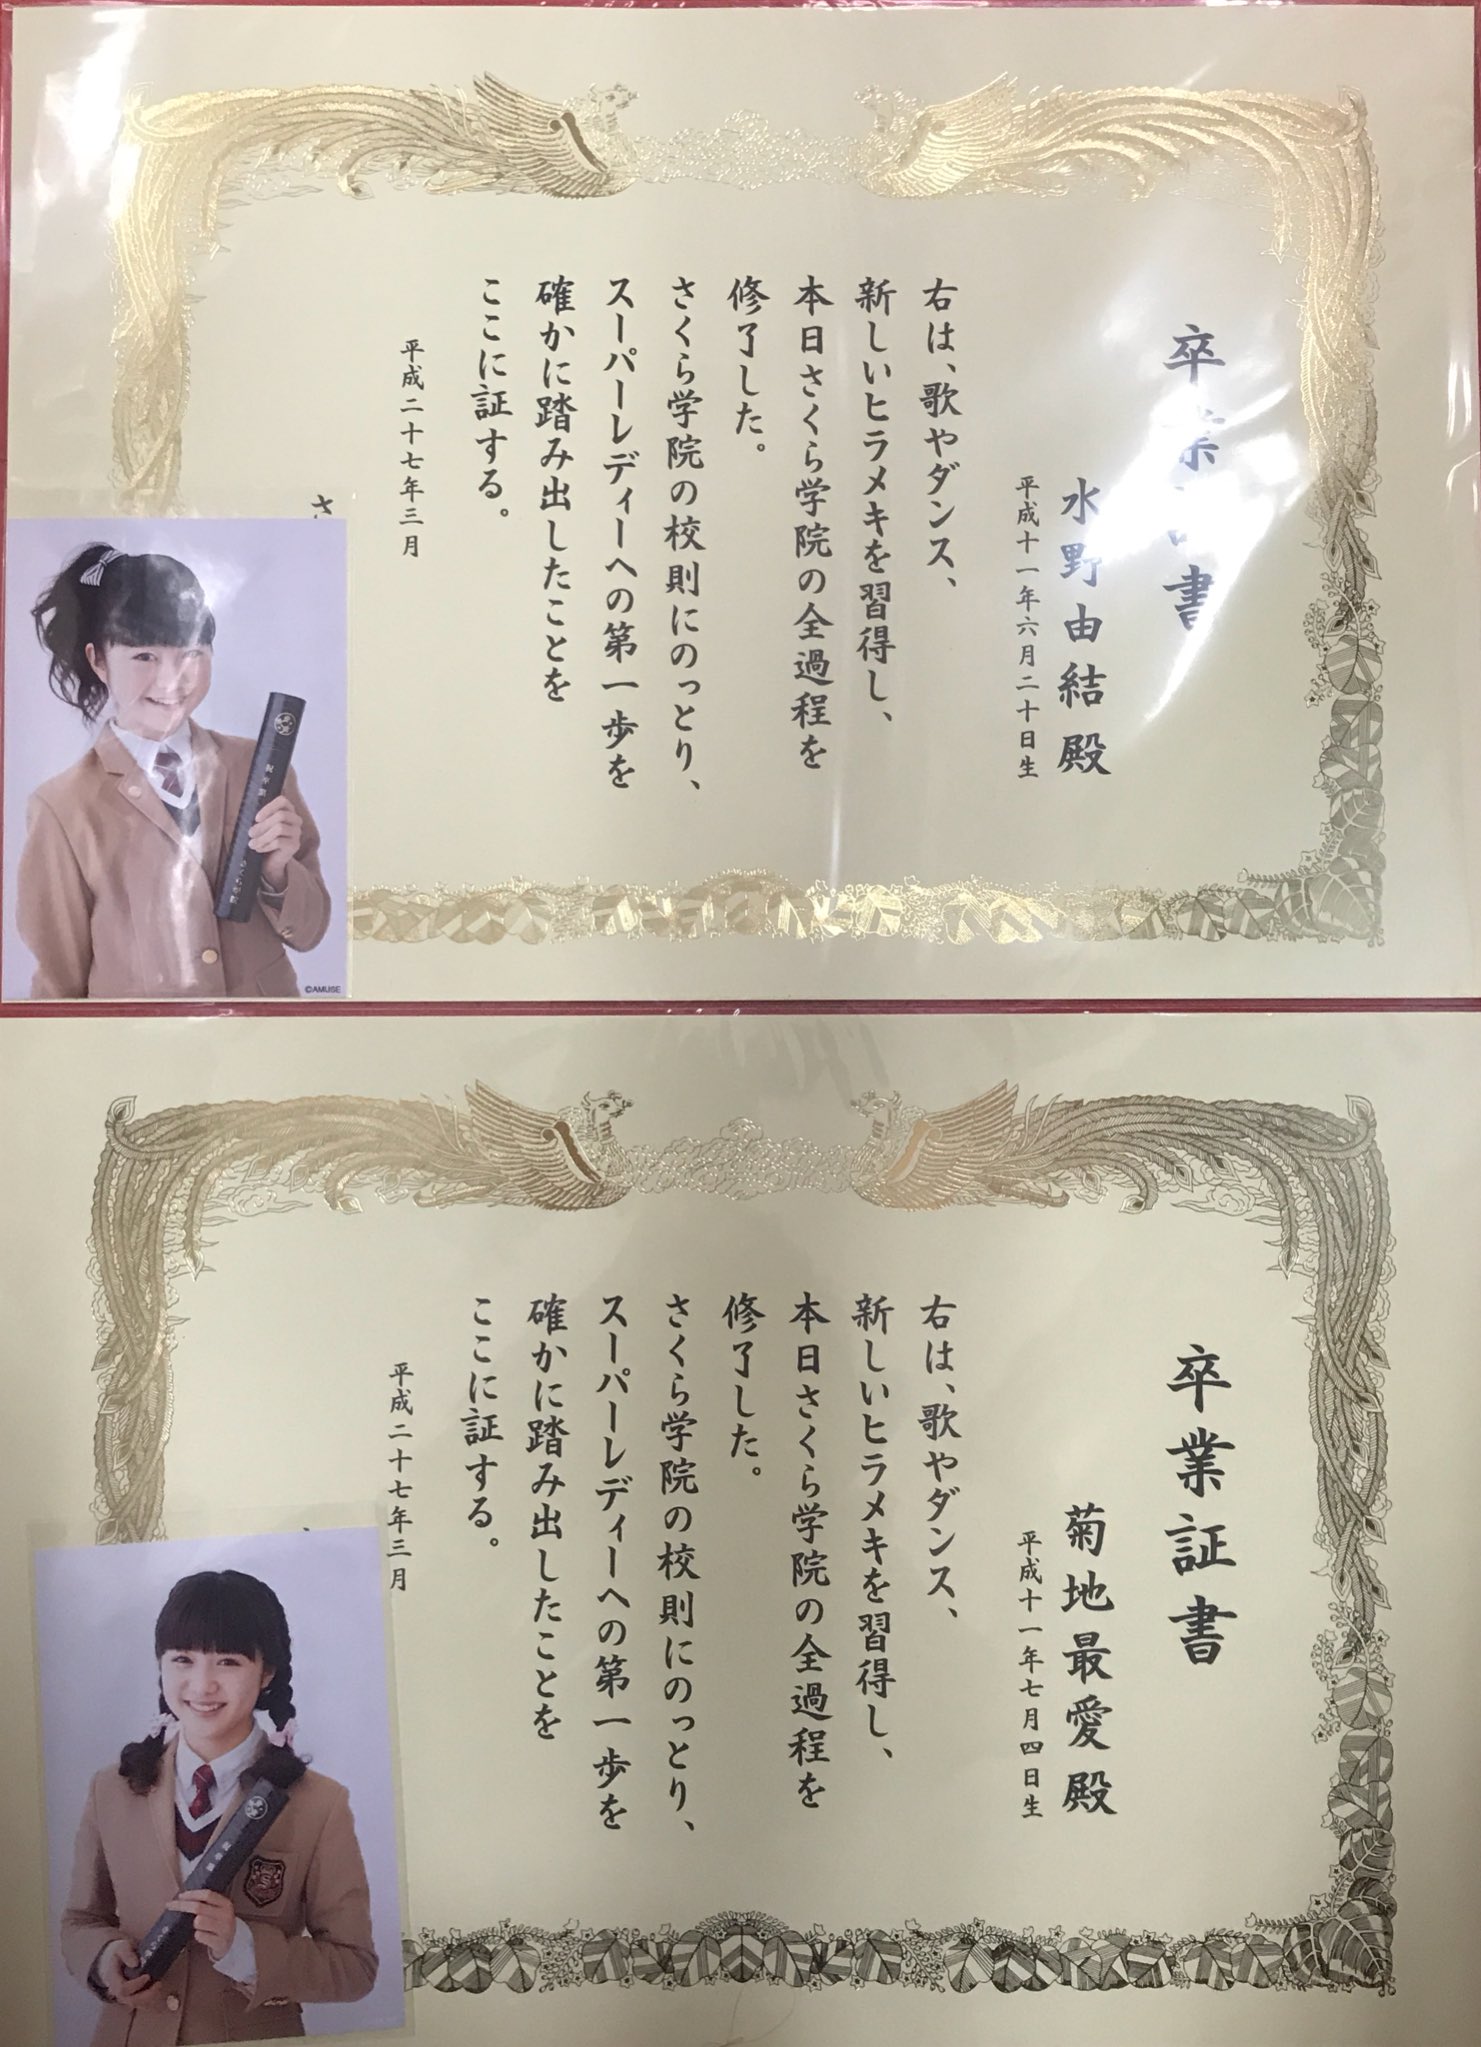 卒業証書
水野由結殿
平成十一年六月二十日生
右は、歌やダンス、
新しいヒラメキを習得し、
本日さくら学院の全過程を
修了した。
さくら学院の校則にのっとり、
スーパーレディーへの第一歩を
確かに踏み出したことを
ここに証する。
平成二十七年三月
さ
祝卒業 さくら学院
©AMUSE
卒業証書
菊地最愛殿
平成十一年七月四日生
右は、歌やダンス、
新しいヒラメキを習得し、
本日さくら学院の全過程を
修了した。
さくら学院の校則にのっとり、
スーパーレディーへの第一歩を
確かに踏み出したことを
ここに証する。
平成二十七年三月